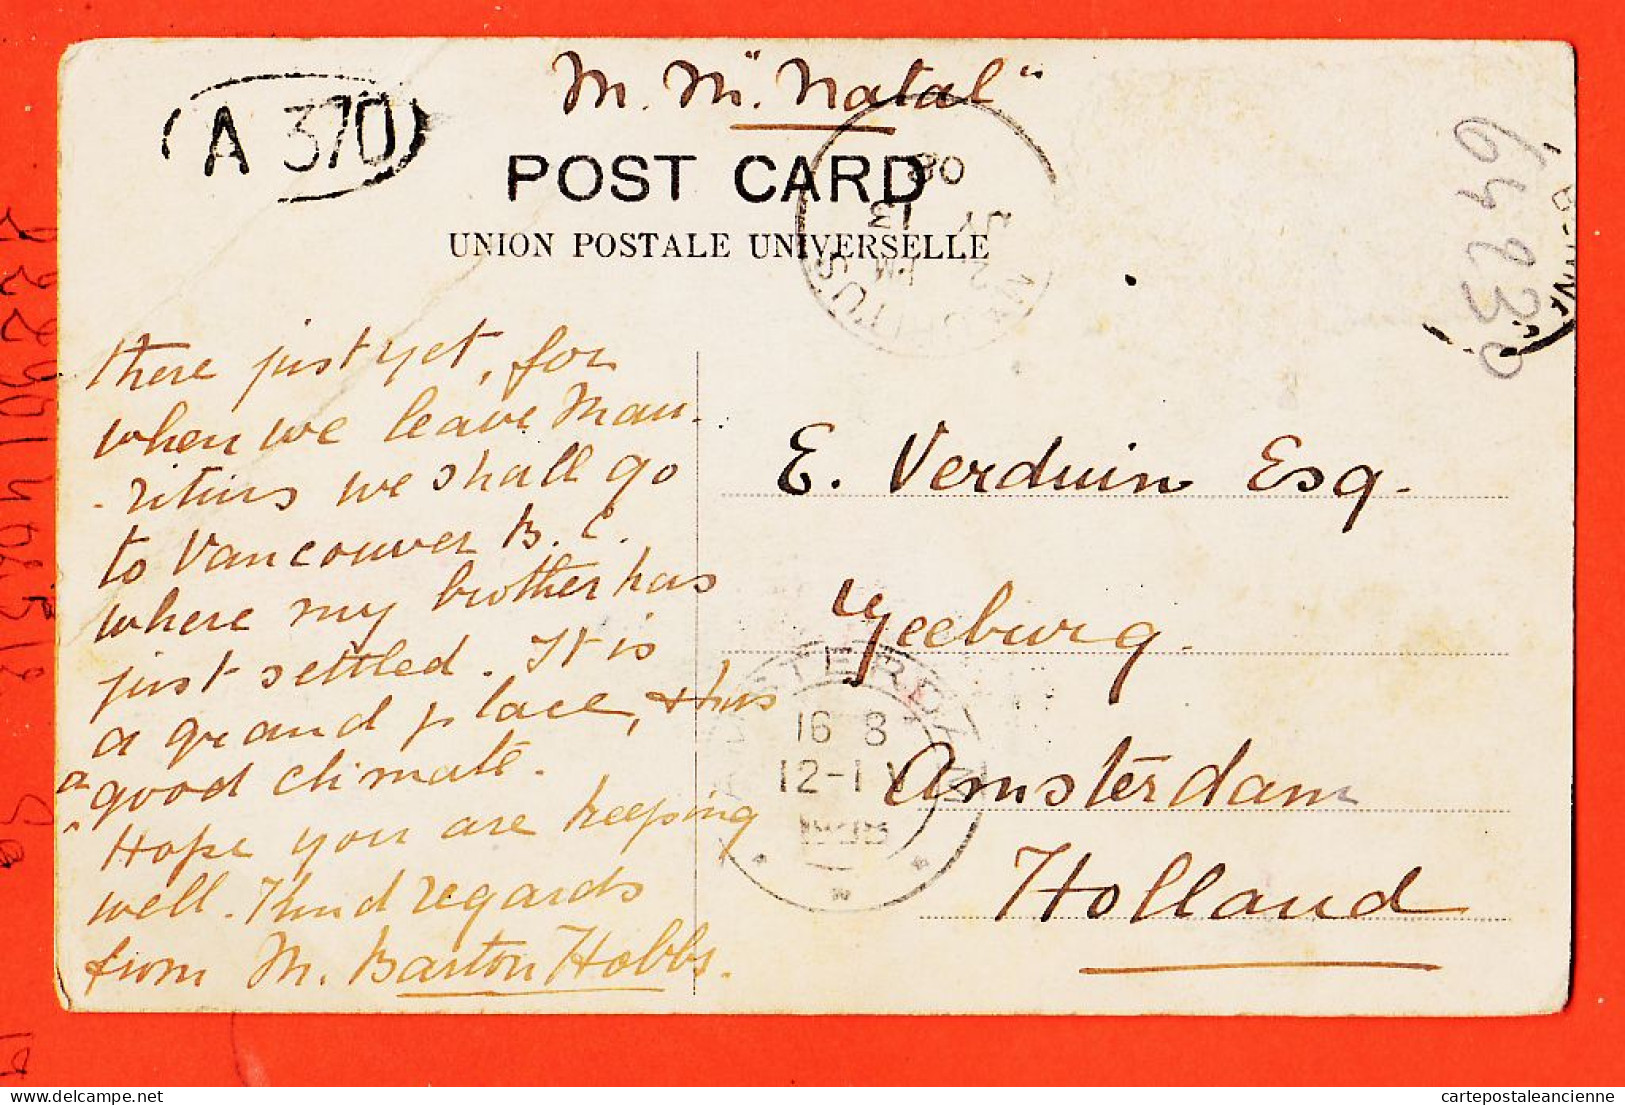 M. M. "Natal"
A 370
POST CARD
UNION POSTALE UNIVERSELLE
MAURITIUS
2 PM
JY 13
08
64230
there just yet, for
when we leave Mau-
-ritius we shall go
to Vancouver B. C.
where my brother has
just settled. It is
a grand place, & has
a good climate.
Hope you are keeping
well. Kind regards
from M. Barton Hobbs.
E. Verduin Esq.
Zeeburg.
Amsterdam
Holland
AMSTERDAM
16 8
12-1 V
cartepostaleancienne